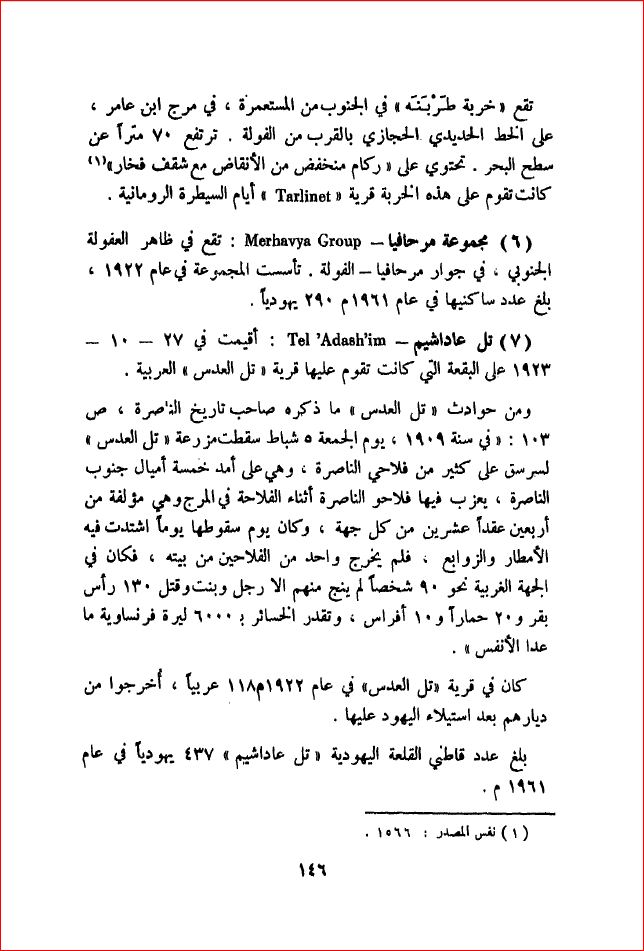 تقع « خربة طَرْبَنَه » في الجنوب من المستعمرة ، في مرج ابن عامر ،
على الخط الحديدي الحجازي بالقرب من الفولة . ترتفع ٧٠ متراً عن
سطح البحر . تحتوي على « ركام منخفض من الأنقاض مع شقف فخار»(١)
كانت تقوم على هذه الخربة قرية « Tarlinet » أيام السيطرة الرومانية .
(٦) مجموعة مرحافيا – Merhavya Group : تقع في ظاهر العفولة
الجنوبي ، في جوار مرحافيا – الفولة . تأسست المجموعة في عام ١٩٢٢ ،
بلغ عدد ساكنيها في عام ١٩٦١م ٢٩٠ يهودياً .
(٧) تل عاداشيم – Tel 'Adash'im : أقيمت في ٢٧ – ١٠ –
١٩٢٣ على البقعة التي كانت تقوم عليها قرية « تل العدس » العربية .
ومن حوادث « تل العدس » ما ذكره صاحب تاريخ الناصرة ، ص
١٠٣ : « في سنة ١٩٠٩ ، يوم الجمعة ٥ شباط سقطت مزرعة « تل العدس »
لسرسق على كثير من فلاحي الناصرة ، وهي على أمد خمسة أميال جنوب
الناصرة ، يعزب فيها فلاحو الناصرة أثناء الفلاحة في المرج وهي مؤلفة من
أربعين عقداً عشرين من كل جهة ، وكان يوم سقوطها يوماً اشتدت فيه
الأمطار والزوابع ، فلم يخرج واحد من الفلاحين من بيته ، فكان في
الجهة الغربية نحو ٩٠ شخصاً لم ينج منهم الا رجل وبنت وقتل ١٣٠ رأس
بقر و٢٠ حماراً و١٠ أفراس ، وتقدر الخسائر بـ ٦٠٠٠ ليرة فرنساوية ما
عدا الأنفس » .
كان في قرية «تل العدس» في عام ١٩٢٢م ١١٨ عربياً ، أُخرجوا من
ديارهم بعد استيلاء اليهود عليها .
بلغ عدد قاطني القلعة اليهودية « تل عاداشيم » ٤٣٧ يهودياً في عام
١٩٦١ م .
(١) نفس المصدر : ١٥٦٦ .
١٤٦